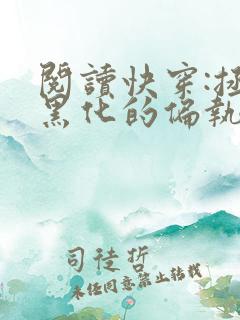 閱讀快穿:拯
黑化的偏執
司徒哲
未经同意禁止转载